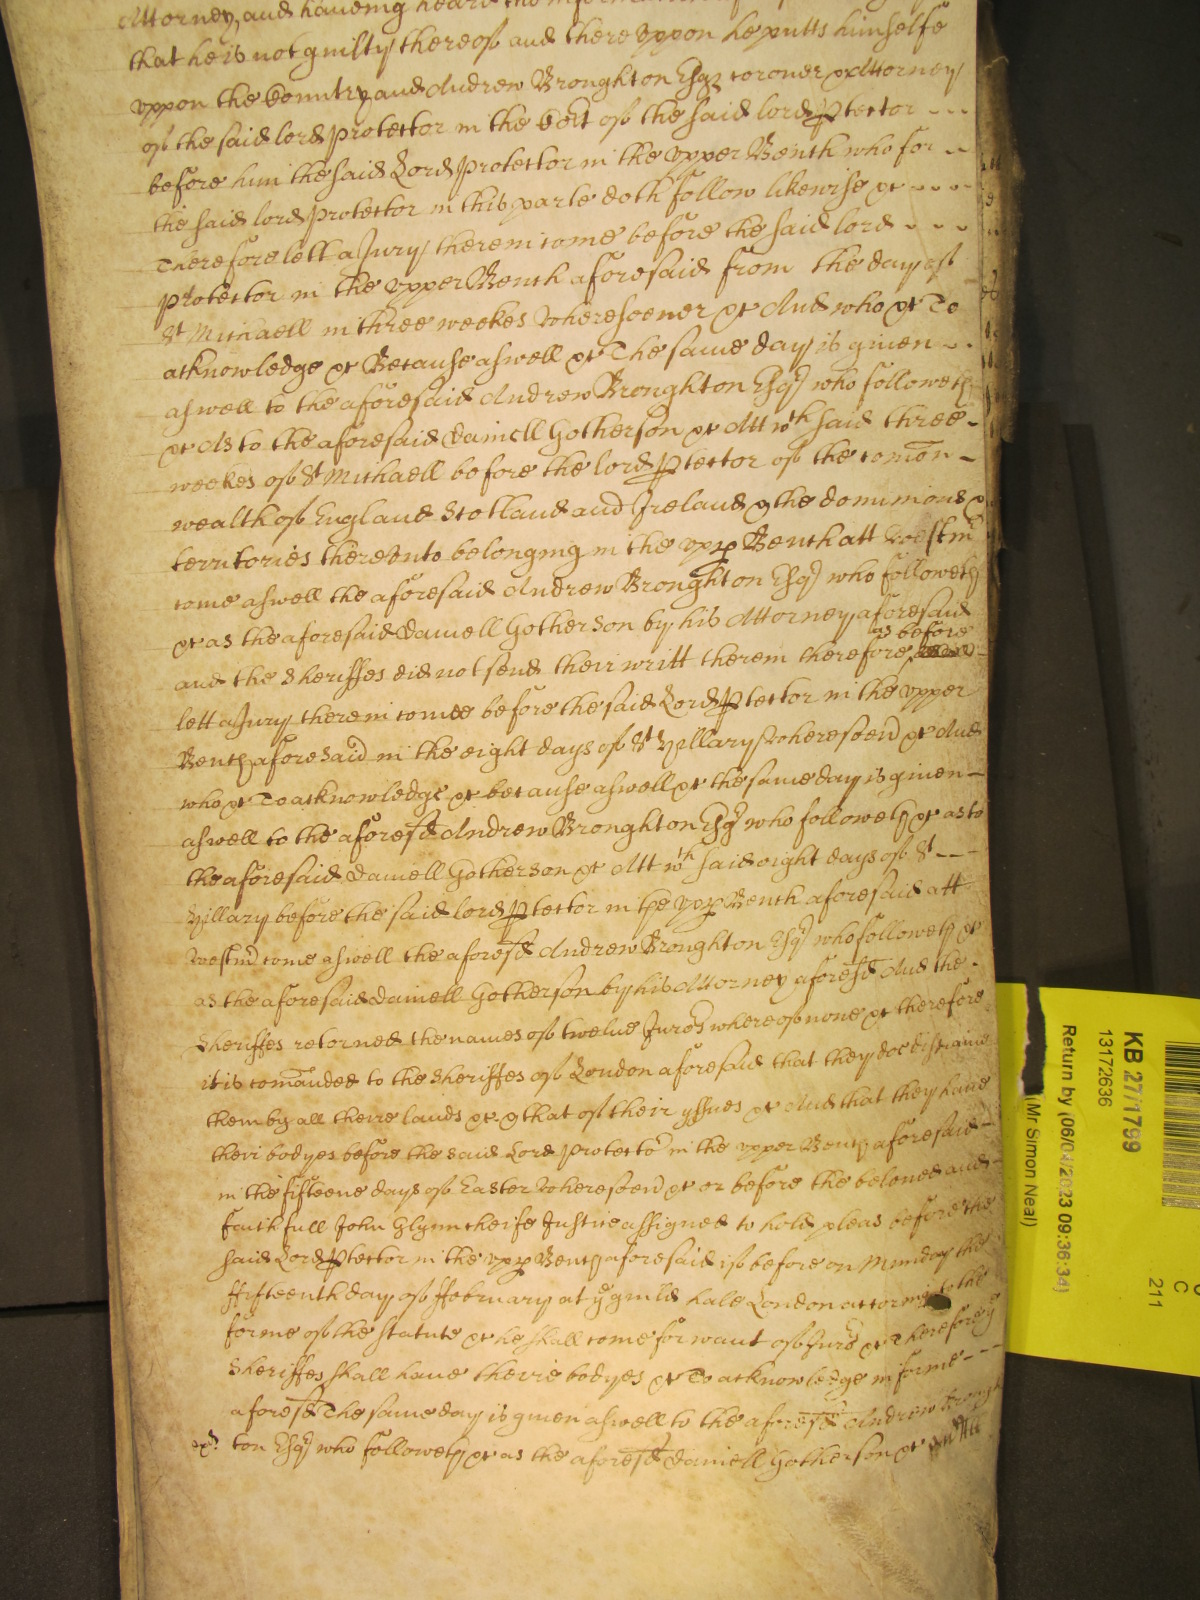 Attorney, and haveing heard the
that he is not guilty thereof and there uppon he putts himselfe
uppon the Country and Andrew Broughton Esqr coroner & Attorney
of the said lord Protector in the Court of the said lord Ptector - - -
before him the said Lord Protector in the upper Bench who for - -
the said lord Protector in this parte doth follow likewise &c - - - -
Therefore lett a Jury therein come before the said lord - - -
Protector in the upper Bench aforesaid from the day of
St Michaell in three weekes wheresoever &c And who &c To
acknowledge &c Because aswell &c The same day is given - -
aswell to the aforesaid Andrew Broughton Esqr who followeth
&c As to the aforesaid Daniell Gotherson &c Att wch said three -
weekes of St Michaell before the lord Ptector of the comon -
wealth of England Scotland and Ireland & the dominions &
territories thereunto belonging in the upp Bench att Westmr
come aswell the aforesaid Andrew Broughton Esqr who followeth
&c as the aforesaid Daniell Gotherson by his Attorney aforesaid
as before
and the Sheriffes did not send their writt therein therefore
lett a Jury therein come before the said Lord Ptector in the upper
Bench aforesaid in the eight days of St Hillary wheresoevr &c And
who &c To acknowledge &c because aswell &c the same day is given -
aswell to the aforesd Andrew Broughton Esqr who followeth &c as to
the aforesaid Daniell Gotherson &c Att wch said eight days of St - - -
Hillary before the said lord Ptector in the upp Bench aforesaid att
Westmr come aswell the aforesd Andrew Broughton Esqr who followeth &c
as the aforesaid Daniell Gotherson by his Attorney aforesd And the -
Sheriffes retorned the names of twelve Jurors whereof none &c therefore
it is comanded to the Sheriffes of London aforesaid that they doe distraine
them by all theire lands &c & that of their yssues &c And that they have
their bodyes before the said Lord Protector in the upper Bench aforesaid -
in the fifteene days of Easter wheresoevr &c or before the beloved and -
faithfull John Glynn cheife Justice assigned to hold pleas before the
said Lord Ptector in the upp Bench aforesaid if before on Munday the
ffifteenth day of ffebruary at ye guild hale London according to the
forme of the statute &c he shall come for want of Jurors &c Therefore ye
Sheriffes shall have theire bodyes &c To acknowledge in forme - - -
aforesd The same day is given aswell to the aforesd Andrew Brough
ton Esqr who followeth &c as the aforesd Daniell Gotherson &c
KB 27/1799
13172636
Return by (06/04/2023 09:36:34)
(Mr Simon Neal)
C
211